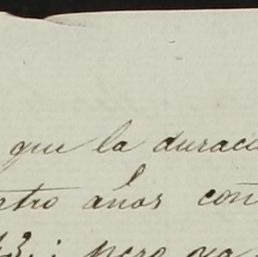 que la duraci
tro años con
13; pero ya